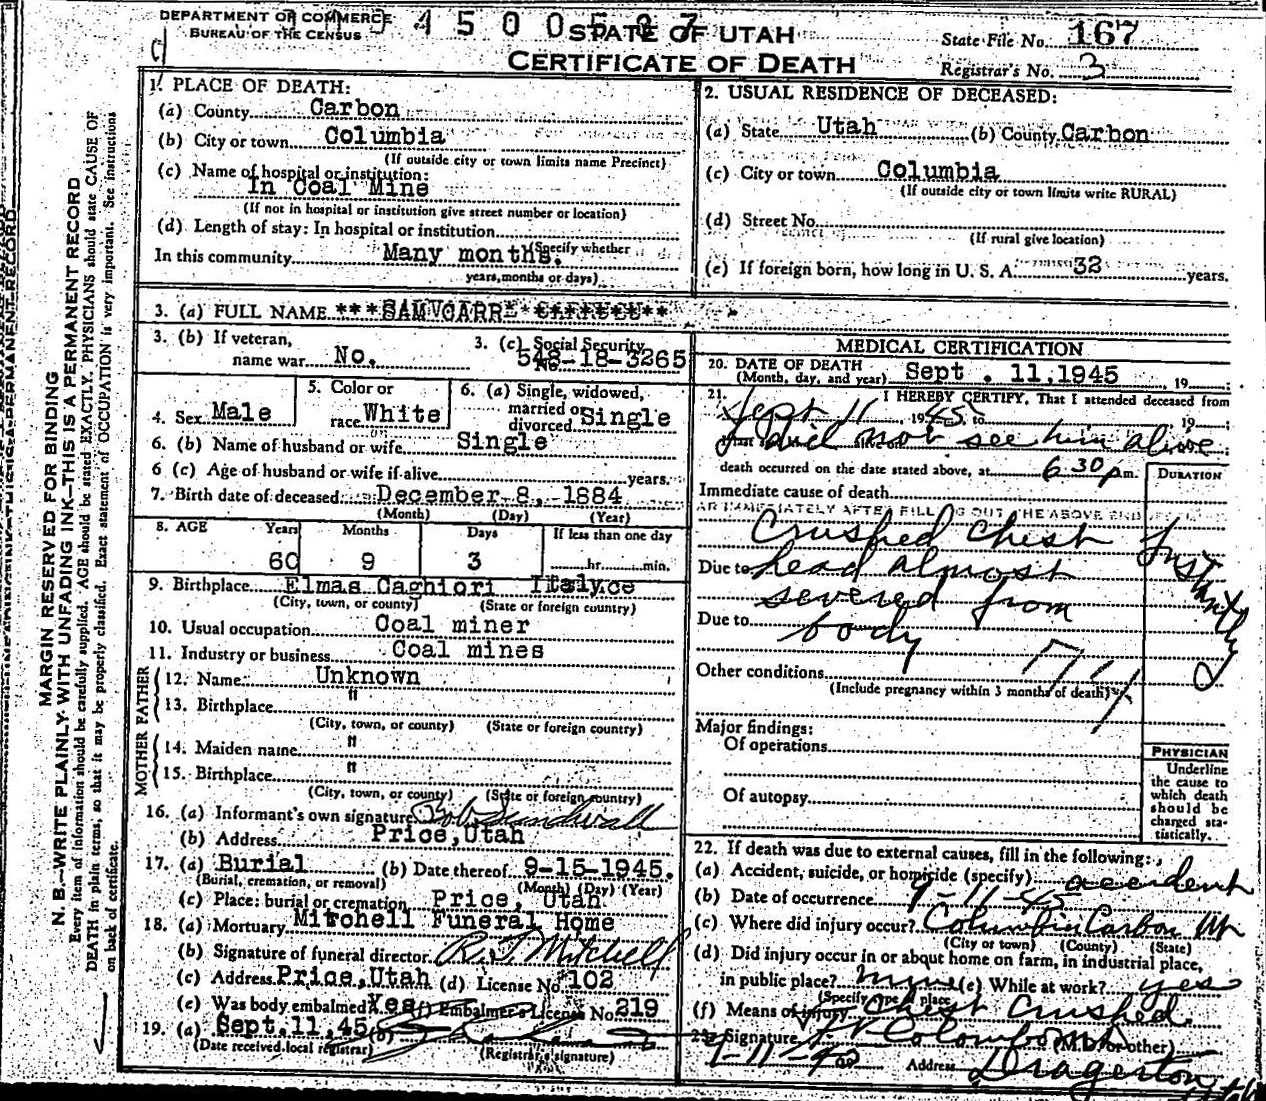 DEPARTMENT OF COMMERCE
BUREAU OF THE CENSUS
STATE OF UTAH
CERTIFICATE OF DEATH
State File No. 167
Registrar's No. 3
MARGIN RESERVED FOR BINDING
N. B.—WRITE PLAINLY WITH UNFADING INK—THIS IS A PERMANENT RECORD
Every item of information should be carefully supplied. AGE should be stated EXACTLY. PHYSICIANS should state CAUSE OF
DEATH in plain terms, so that it may be properly classified. Exact statement of OCCUPATION is very important. See instructions
on back of certificate.
1. PLACE OF DEATH:
(a) County Carbon
(b) City or town Columbia
(If outside city or town limits name Precinct)
(c) Name of hospital or institution:
In Coal Mine
(If not in hospital or institution give street number or location)
(d) Length of stay: In hospital or institution
(Specify whether
In this community Many months.
years, months or days)
2. USUAL RESIDENCE OF DECEASED:
(a) State Utah (b) County Carbon
(c) City or town Columbia
(If outside city or town limits write RURAL)
(d) Street No.
(If rural give location)
(e) If foreign born, how long in U. S. A. 32 years.
3. (a) FULL NAME ***SAM
3. (b) If veteran,
name war No.
3. (c) Social Security
No. 548-18-3265
4. Sex Male
5. Color or
race White
6. (a) Single, widowed,
married or
divorced Single
6. (b) Name of husband or wife Single
6 (c) Age of husband or wife if alive years.
7. Birth date of deceased December 8, 1884
(Month) (Day) (Year)
8. AGE Years Months Days If less than one day
60 9 3 hr. min.
9. Birthplace Elmas Caghiori Italy
(City, town, or county) (State or foreign country)
10. Usual occupation Coal miner
11. Industry or business Coal mines
FATHER
12. Name Unknown
13. Birthplace "
(City, town, or county) (State or foreign country)
MOTHER
14. Maiden name "
15. Birthplace "
(City, town, or county) (State or foreign country)
16. (a) Informant's own signature Bob
(b) Address Price, Utah
17. (a) Burial (b) Date thereof 9-15-1945.
(Burial, cremation, or removal) (Month) (Day) (Year)
(c) Place: burial or cremation Price, Utah
18. (a) Mortuary Mitchell Funeral Home
(b) Signature of funeral director R. J. Mitchell
(c) Address Price, Utah (d) License No. 102
(e) Was body embalmed Yes (f) Embalmer's License No. 219
19. (a) Sept. 11, 45 (b)
(Date received local registrar) (Registrar's signature)
MEDICAL CERTIFICATION
20. DATE OF DEATH
(Month, day, and year) Sept. 11, 1945, 19
21. I HEREBY CERTIFY, That I attended deceased from
Sept 11 1945 to 19
I did not see him alive
death occurred on the date stated above, at 6:30 pm.
DURATION
Immediate cause of death
Crushed Chest
Instantly
Due to head almost
severed from
Due to body
Other conditions
(Include pregnancy within 3 months of death)
Major findings:
Of operations
Of autopsy
PHYSICIAN
Underline
the cause to
which death
should be
charged sta-
tistically.
22. If death was due to external causes, fill in the following:
(a) Accident, suicide, or homicide (specify) accident
(b) Date of occurrence 9-11-45
(c) Where did injury occur? Columbia Carbon Ut
(City or town) (County) (State)
(d) Did injury occur in or about home on farm, in industrial place,
in public place? mine (e) While at work? yes
(Specify type of place)
(f) Means of injury Chest Crushed
23. Signature Colombo (M.D. or other)
Address Dragerton
Utah